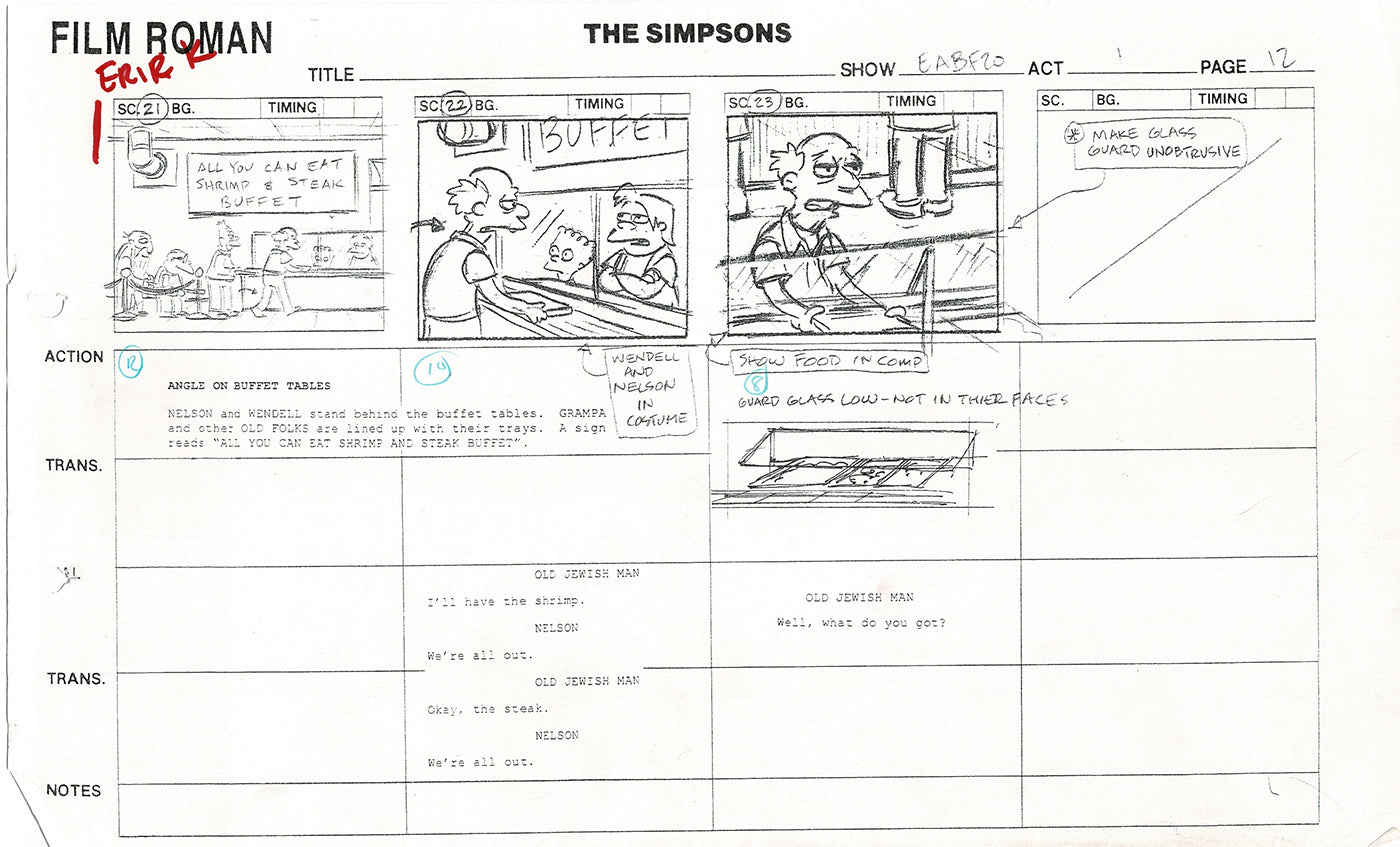 FILM ROMAN
THE SIMPSONS
ERIK K
TITLE
SHOW EABF20
ACT 1
PAGE 12
SC. 21 BG. TIMING
SC. 22 BG. TIMING
SC. 23 BG. TIMING
SC. BG. TIMING
ALL YOU CAN EAT
SHRIMP & STEAK
BUFFET
BUFFET
* MAKE GLASS
GUARD UNOBTRUSIVE
ACTION
12
ANGLE ON BUFFET TABLES
NELSON and WENDELL stand behind the buffet tables. GRAMPA
and other OLD FOLKS are lined up with their trays. A sign
reads "ALL YOU CAN EAT SHRIMP AND STEAK BUFFET".
10
WENDELL
AND
NELSON
IN
COSTUME
SHOW FOOD IN COMP
8
GUARD GLASS LOW - NOT IN THIER FACES
TRANS.
OLD JEWISH MAN
I'll have the shrimp.
NELSON
We're all out.
OLD JEWISH MAN
Well, what do you got?
TRANS.
OLD JEWISH MAN
Okay, the steak.
NELSON
We're all out.
NOTES